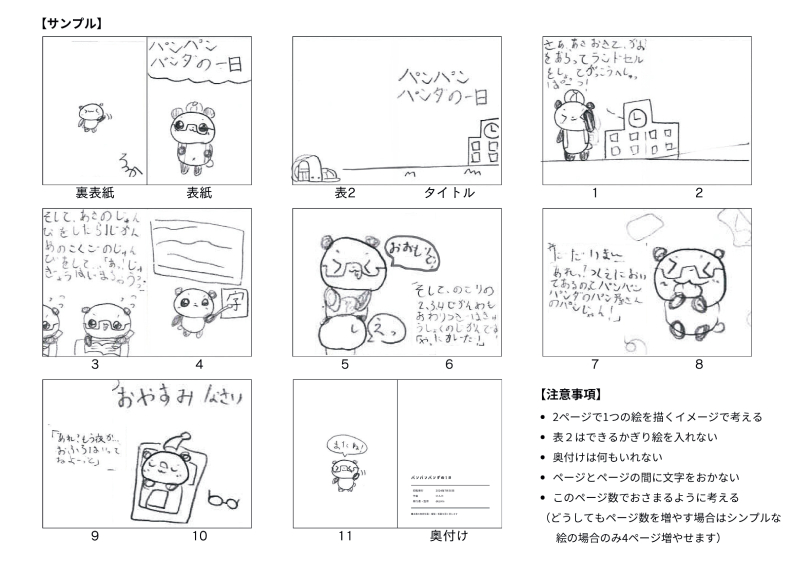 【サンプル】
パンパン
パンダの一日
裏表紙
表紙
パンパン
パンダの一日
表2
タイトル
さあ、あさ おきて、かお
をあらってランドセル
をしょってがっこうへしゅ
ぱーつ!
1
2
そして、あさのじゅん
びをしたら1じかん
めのこくごのじゅん
びをして、「あ、!じゅ
ぎょうはじまるっ!」
字
3
4
おおもり
えっ
そして、のこりの
2,3,4じかんめも
おわりつぎはきゅ
うしょくのじかんです
5
6
ただいまー
あれ、!つくえにおい
てあるのってパンパン
パンダのパン秀さん
のパンじゃん!」
7
8
おやすみなさい
「あれ!もう夜か…
おふろはいって
ねよーっと」
9
10
またね!
パンパンパンダの1日
11
奥付け
【注意事項】
• 2ページで1つの絵を描くイメージで考える
• 表2はできるかぎり絵を入れない
• 奥付けは何もいれない
• ページとページの間に文字をおかない
• このページ数でおさまるように考える
(どうしてもページ数を増やす場合はシンプルな
絵の場合のみ4ページ増やせます)